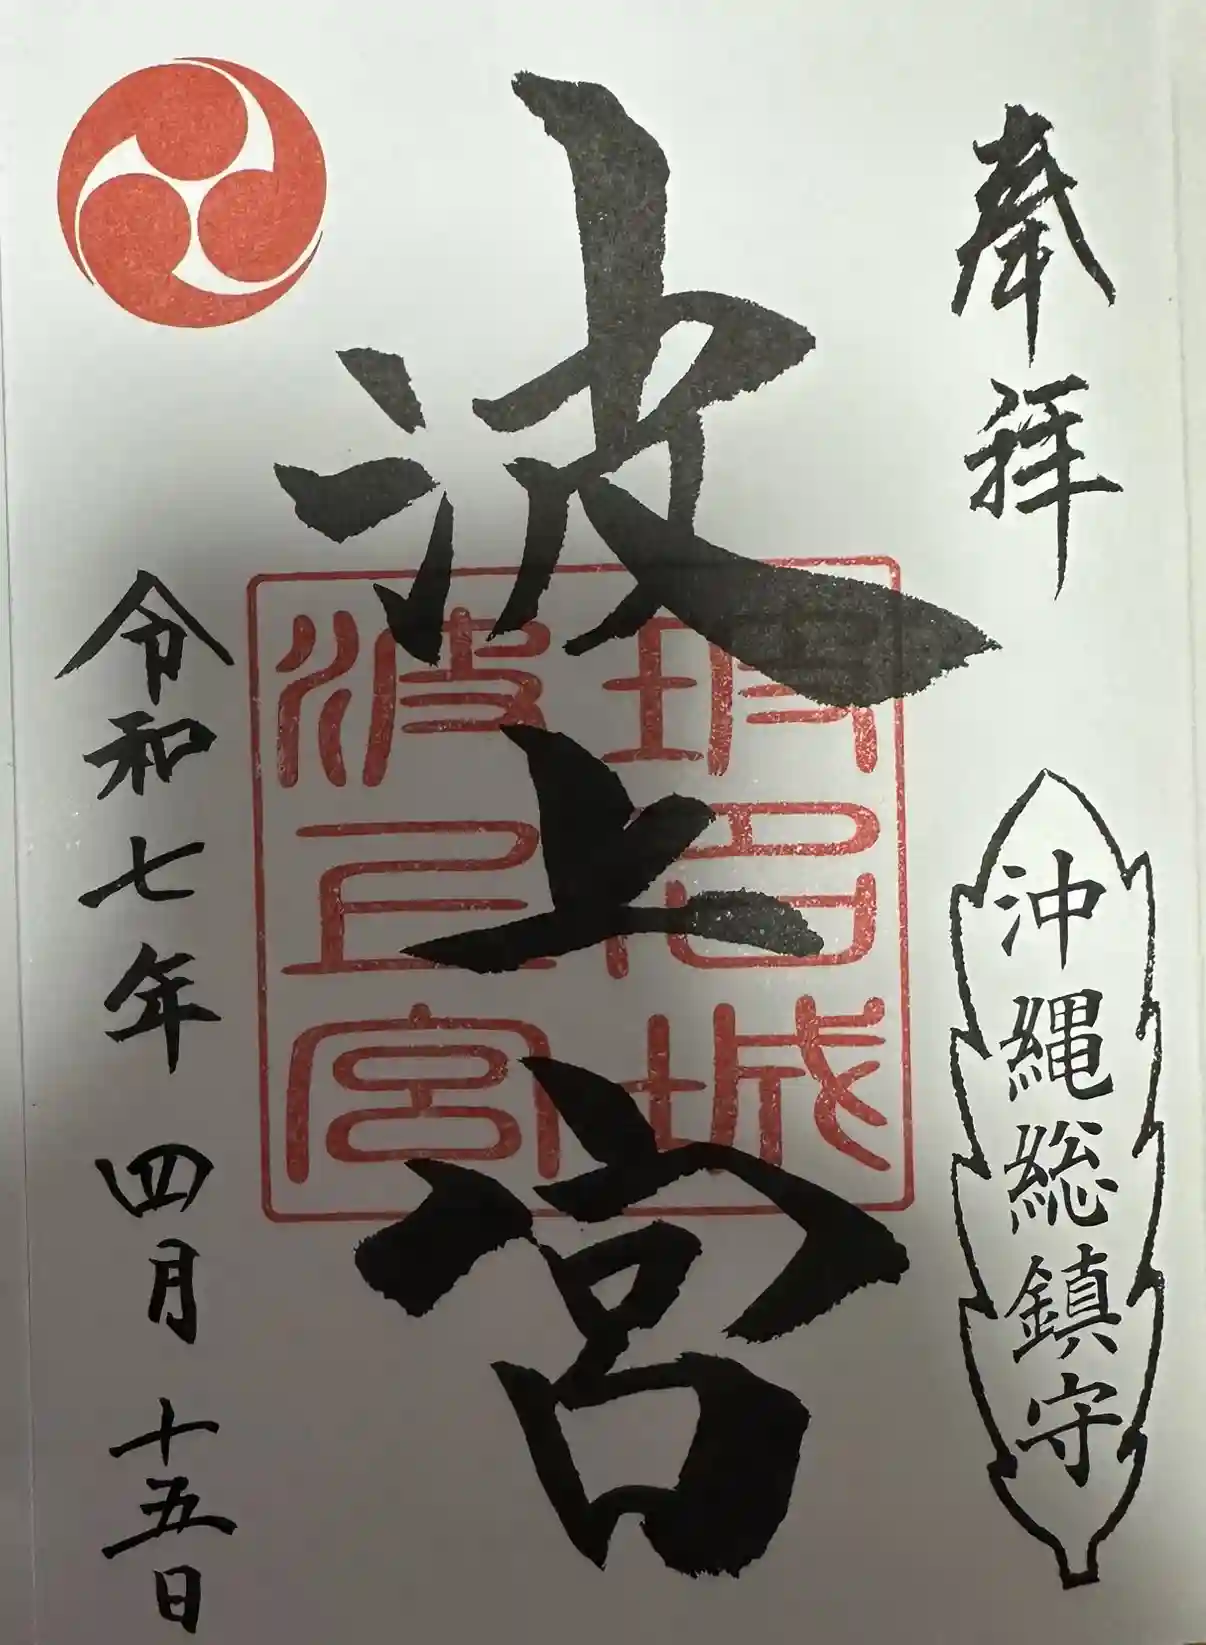 奉拝
沖縄総鎮守
波上宮
琉球城
波上宮
令和七年 四月 十五日